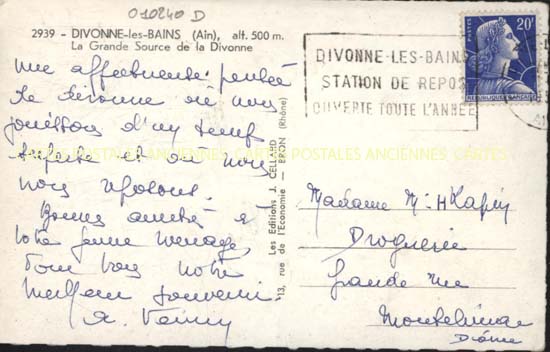 010240 D
2939 - DIVONNE-les-BAINS (Ain), alt. 500 m.
La Grande Source de la Divonne
Une affectueuse pensée
de Divonne où nous
jouissons d'un temps
où nous
nous reposons.
Bonne amitié à
votre jeune ménage,
Pour vous notre
meilleur souvenir
Les Editions J. CELLARD
13, rue de l'Economie - BRON (Rhône)
DIVONNE-LES-BAINS
STATION DE REPOS
OUVERTE TOUTE L'ANNÉE
20F
REPUBLIQUE FRANÇAISE
CARTES POSTALES ANCIENNES CARTES
Madame M. H
Droguerie
Grande rue
Montélimar
Drôme